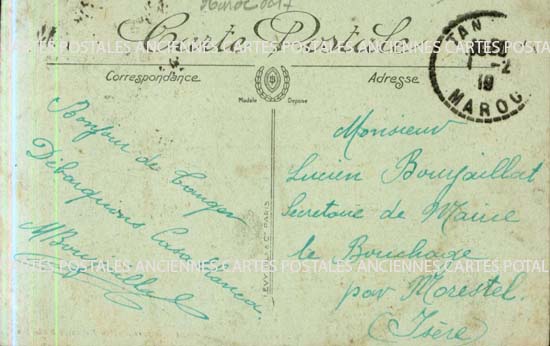 Maroc
Carte Postale
Correspondance
Adresse
Modèle Déposé
TAN
1-2
19
MAROC
CARTES POSTALES ANCIENNES CARTES POSTALES ANCIENNES CARTES POSTALES
Bonjour de Tanger
Débarquerons Casablanca.
Monsieur
Lucien Bourjaillat
Secrétaire de Mairie
le Bouchage
par Morestel.
(Isère)
CARTES POSTALES ANCIENNES CARTES POSTALES ANCIENNES CARTES POSTAL
PARIS